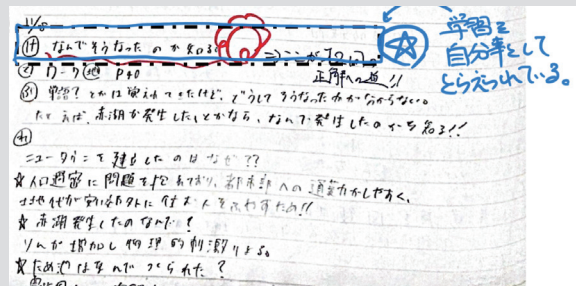 11/8
け なんでそうなったのか知る
学習を
自分事として
とらえられている。
と ワーク 地 P40
正解への道!!
ふ 単語?とかは覚えれてきたけど、どうしてそうなったかがわからない。
たとえば、赤潮が発生したとかなら、なんで発生したのかを知る!!
れ
ニュータウンを建設したのはなぜ??
☆人口過密に問題を抱えており、都市部への通勤がしやすく、
土地代が安い郊外に住む人をふやすため!!
☆赤潮発生したのなんで?
りんが増加し
☆ため池はなんでつくられた?